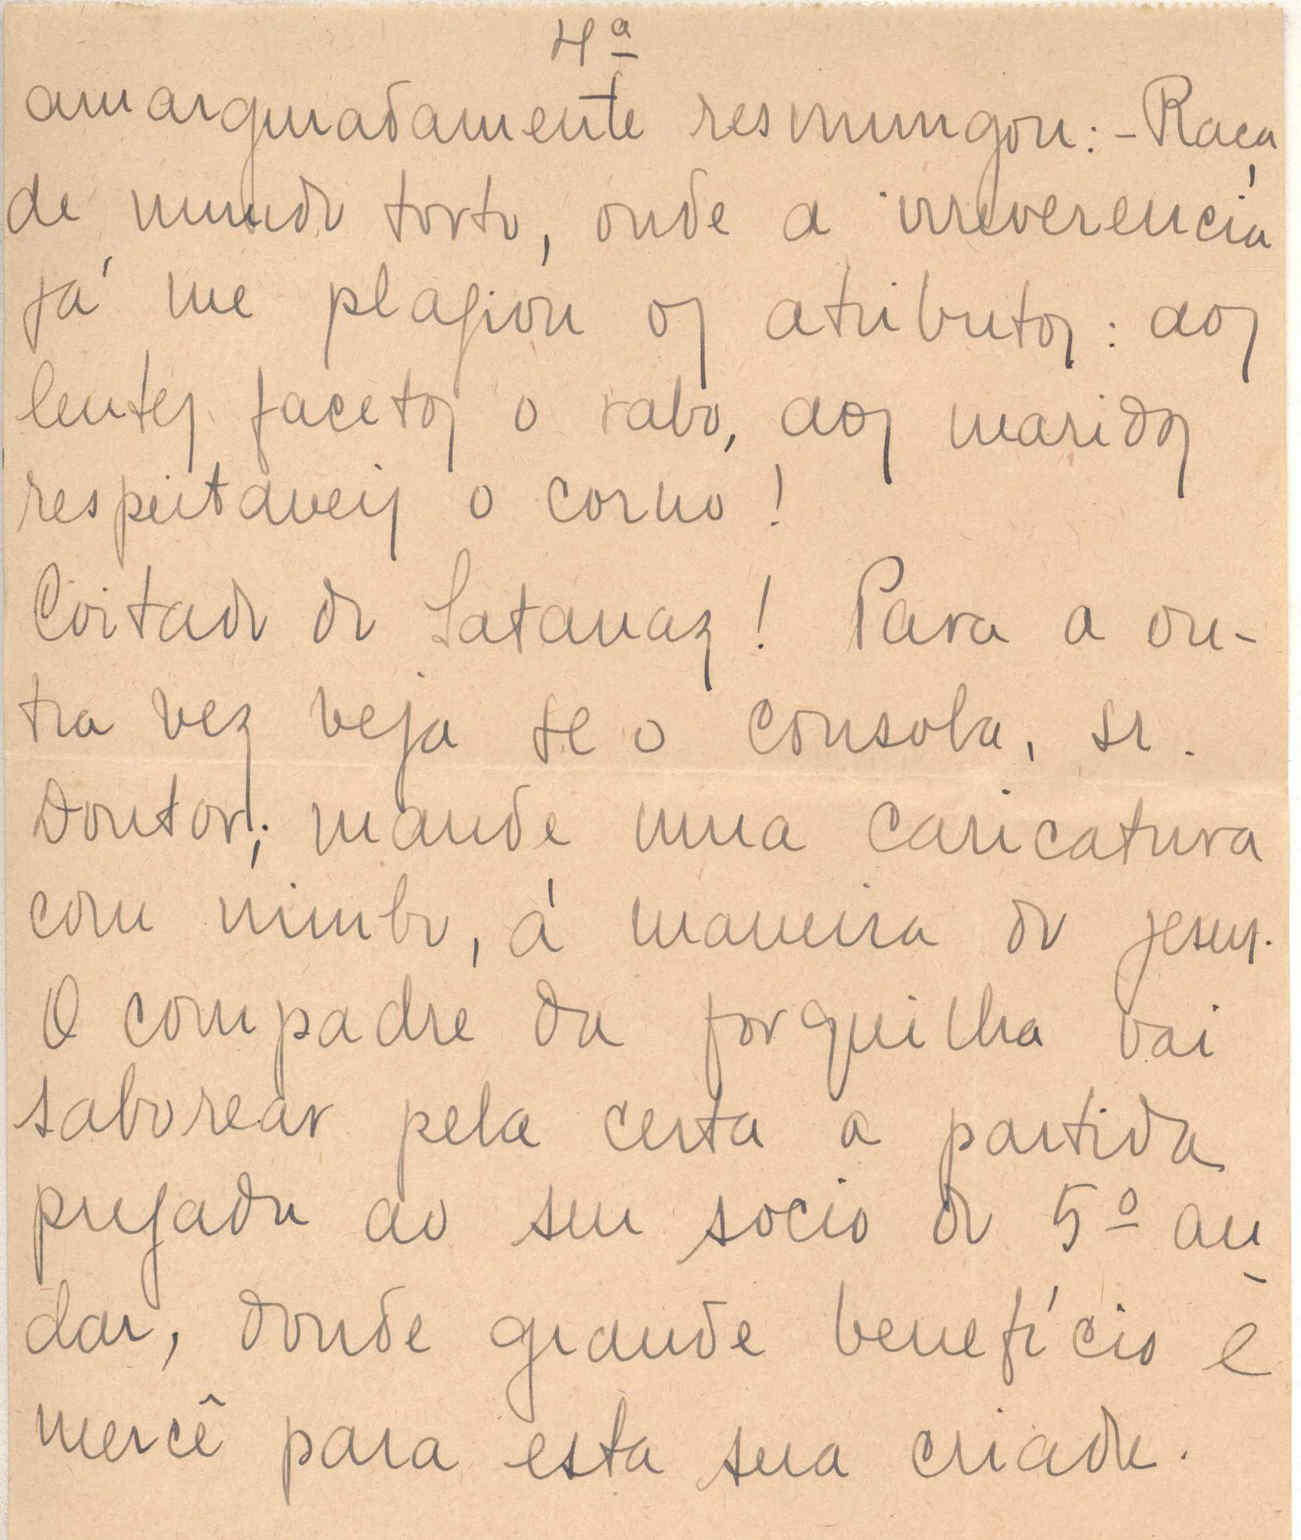 4ª
amarguradamente resmungou: - Raça
de mundo torto, onde a irreverencia
já me plagiou os atributos: aos
lentes facetos o rabo, aos maridos
respeitaveis o corno!
Coitado do Satanaz! Para a ou-
tra vez veja se o consola, sr.
Doutor; mande uma caricatura
com nimbo, á maneira de Jesus.
O compadre da forquilha vai
saborear pela certa a partida
pregada ao seu socio do 5º an-
dar, donde grande benefício e
mercê para esta sua criada.